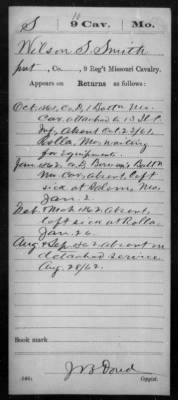 S 10 9 Cav. Mo.
Wilson S. Smith
pvt, Co. , 9 Reg't Missouri Cavalry.
Appears on Returns as follows:
Oct. 1861, Co. D, 1 Batt'n Mo.
Cav. attached to 13 Ill.
Inf., Absent Oct. 23/61,
Rolla, Mo. waiting
for Equipment.
Jan. 1862, Co. D, Bowen's Batt'n
Mo. Cav., absent, left
sick at Salem, Mo.
Jan. 2.
Feb. & Mch. 1862 Absent,
left sick at Rolla,
Jan. 26.
Aug. & Sep. 1862 Absent on
detached service
Aug. 28/62.
Book mark:
(546)
J W B Doud
Copyist.